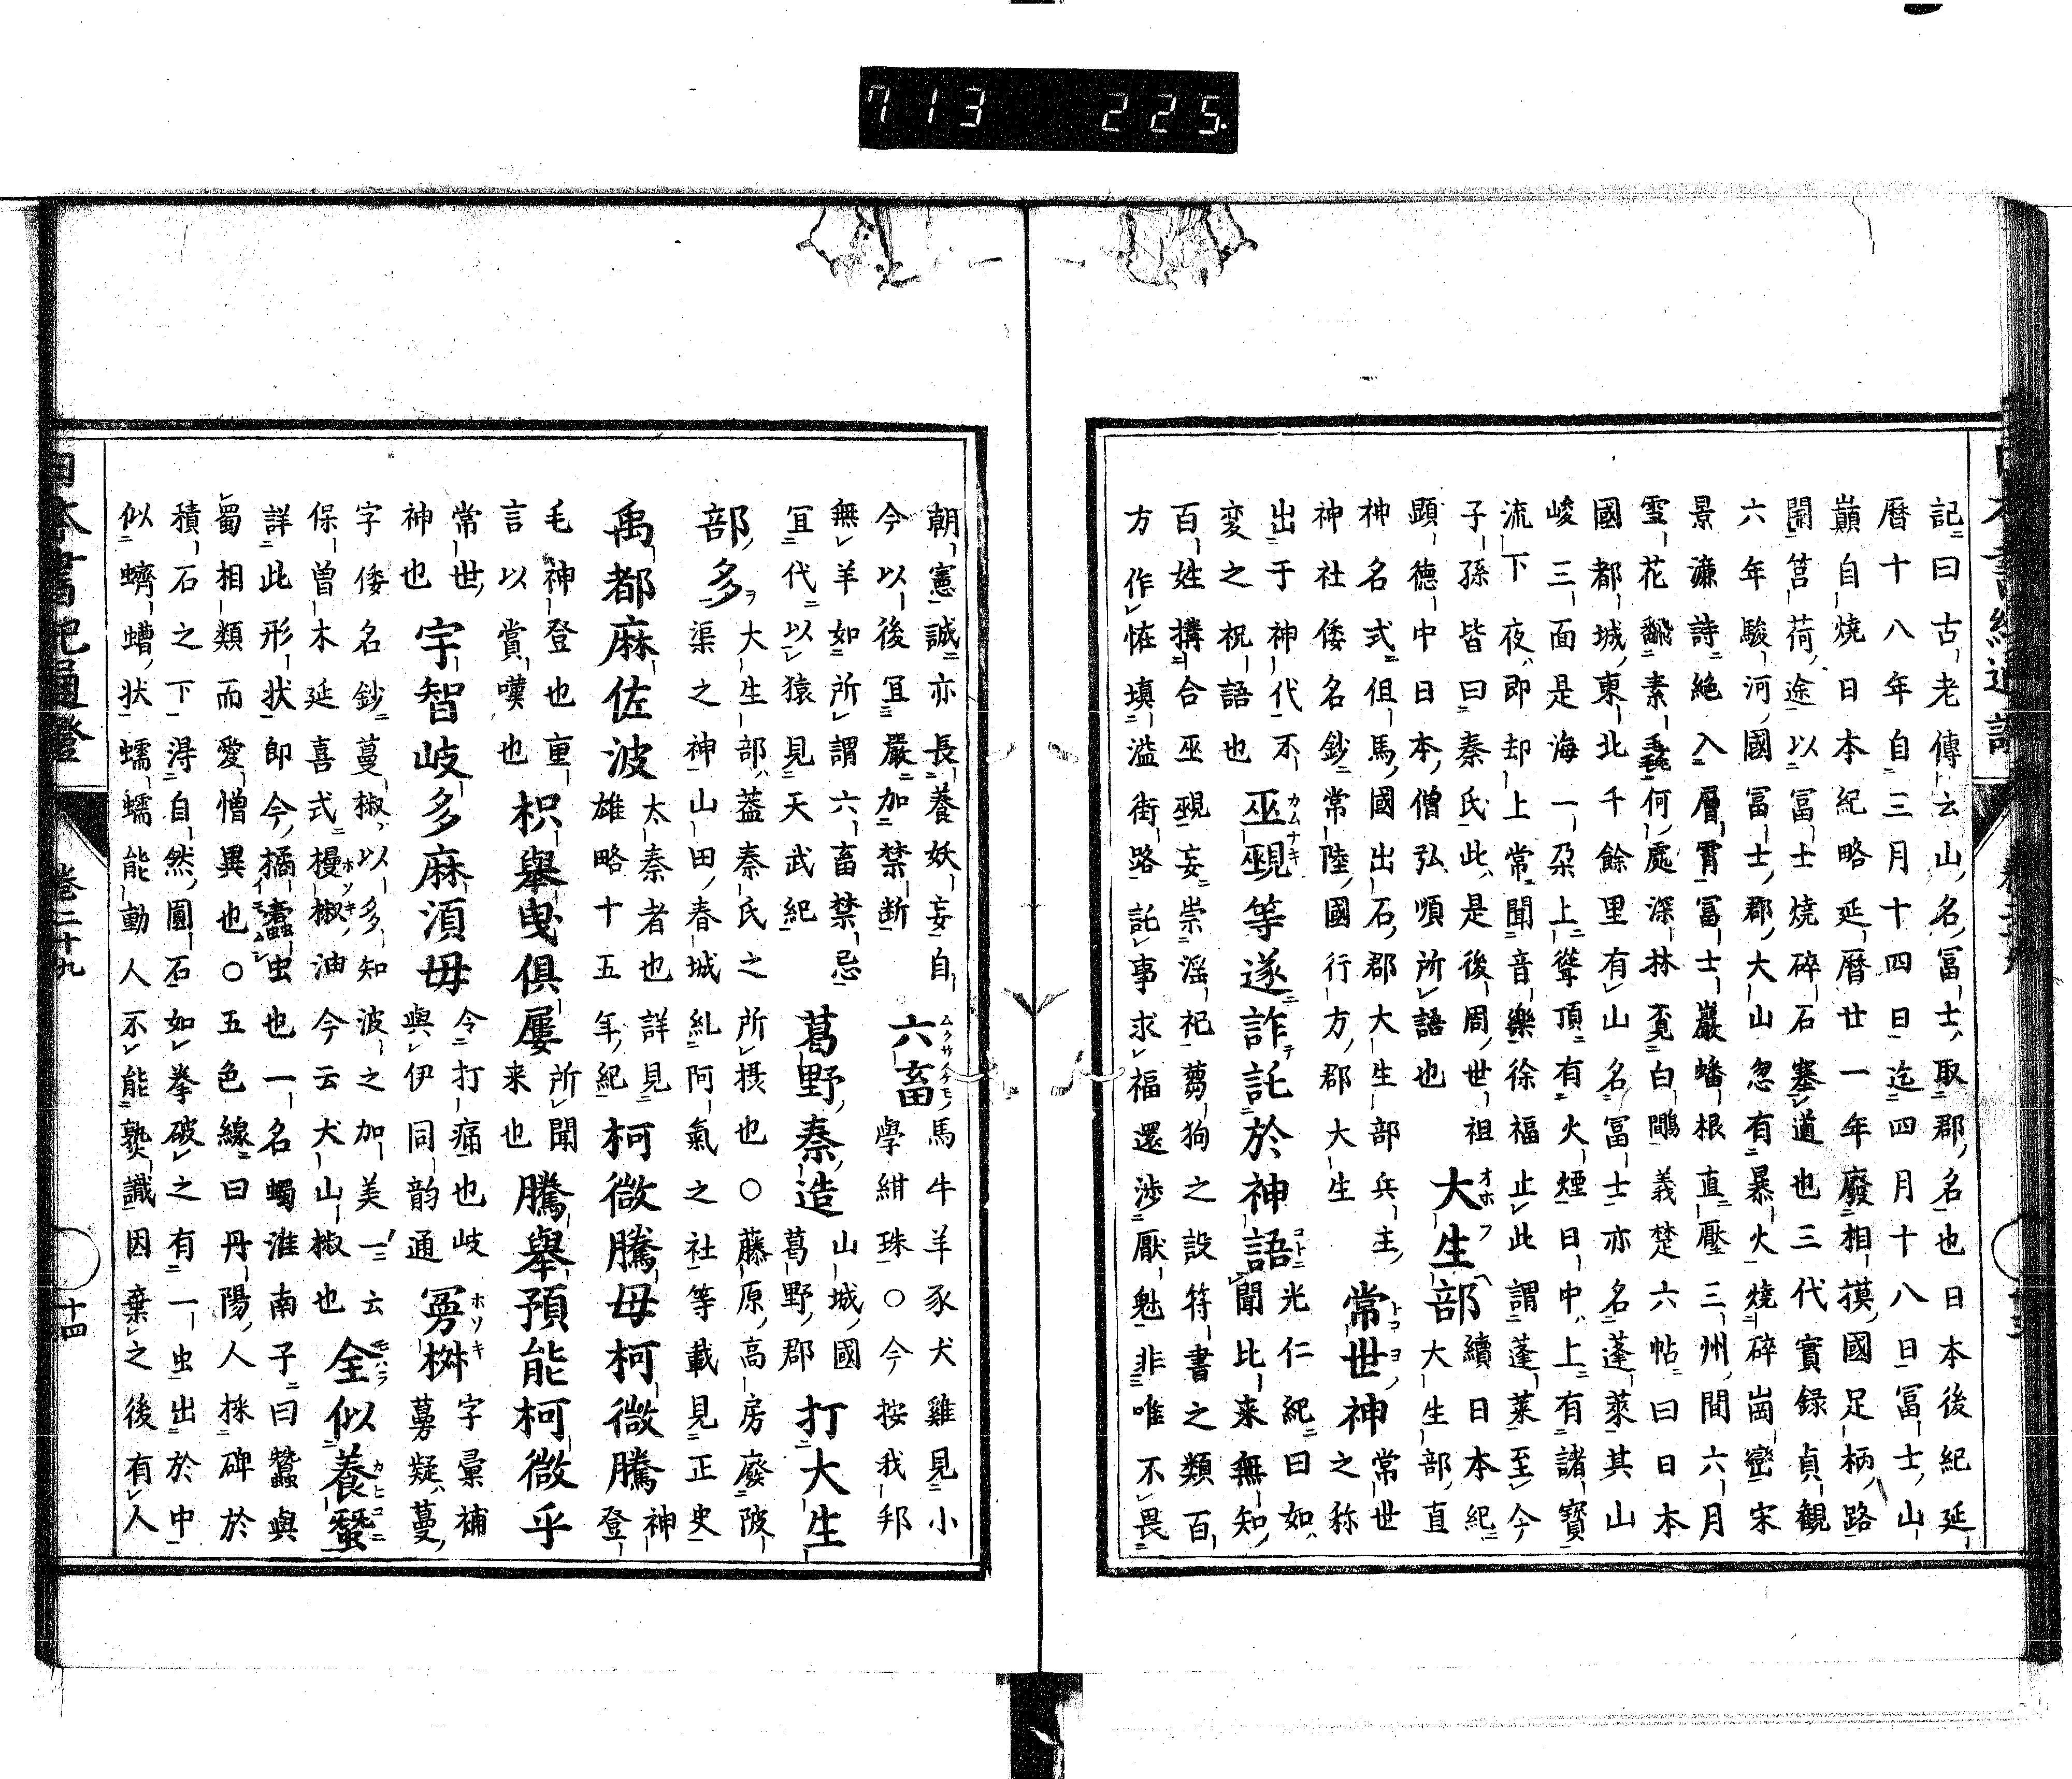 記曰古老傳云山名冨士取郡名也日本後紀延
暦十八年自三月十四日迄四月十八日冨士山
巓自燒日本紀略延暦廿一年廢相摸國足柄路
開筥荷途以冨士燒碎石塞道也三代實録貞観
六年駿河國冨士郡大山忽有暴火燒碎崗巒宋
景濂詩絶入層霄冨士巖蟠根直壓三州間六月
雪花翻素毳何處深林覔白鷴義楚六帖曰日本
國都城東北千餘里有山名冨士亦名蓬萊其山
峻三面是海一朶上聳頂有火煙日中上有諸寶
流下夜即却上常聞音樂徐福止此謂蓬萊至今
子孫皆曰秦氏此是後周世祖
顕德中日本僧弘順所語也
大生部
續日本紀
大生部直
神名式伹馬國出石郡大生部兵主
神社倭名鈔常陸國行方郡大生
常世神
常世
之称
出于神代不
変之祝語也
巫覡等遂詐託於神語
光仁紀曰如
聞比来無知
百姓搆合巫覡妄崇滛祀蒭狗之設符書之類百
方作恠填溢街路託事求福還渉厭魅非唯不畏
朝憲誠亦長養妖妄自
今以後冝嚴加禁断
六畜
馬牛羊豕犬雞見小
學紺珠○今按我邦
無羊如所謂六畜禁忌
冝代以猿見天武紀
葛野秦造
山城國
葛野郡
打大生
部多
大生部蓋秦氏之所摂也○藤原高房廢陂
渠之神山田春城糺阿氣之社等載見正史
禹都麻佐波
太秦者也詳見
雄略十五年紀
柯微騰母柯微騰
神
登
毛神登也重
言以賞嘆也
枳擧曳俱屢
所聞
来也
騰擧預能柯微乎
常世
神也
宇智岐多麻湏母
令打痛也岐
與伊同韵通
字彙補
疑蔓
字倭名鈔蔓椒以多知波之加美一云
保曽木延喜式樠椒油今云犬山椒也
全似養蠶
詳此形状即今橘蠹虫也一名蠋淮南子曰蠶與
蜀相類而愛憎異也○五色線曰丹陽人採碑於
積石之下得自然圓石如拳破之有一虫出於中
似蠐螬状蠕蠕能動人不能孰識因棄之後有人
日本書紀通證
卷二十九
十四
713 225